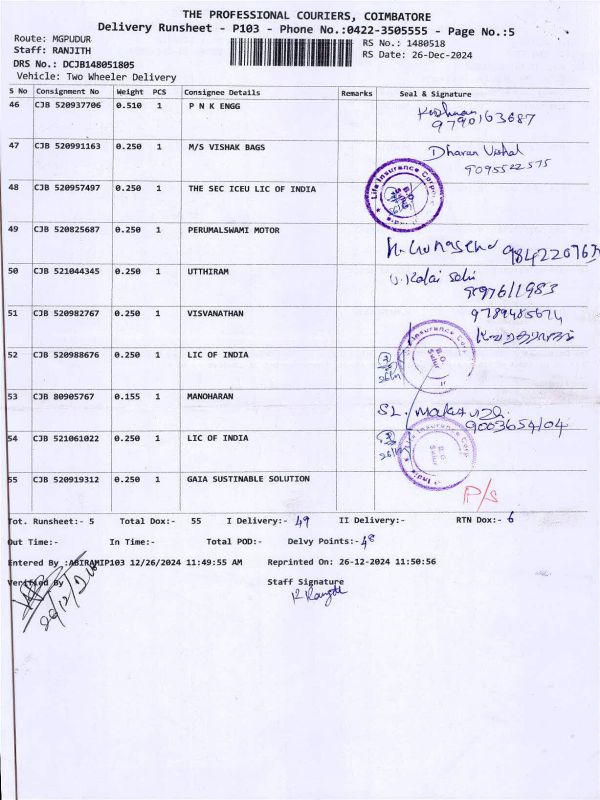 THE PROFESSIONAL COURIERS, COIMBATORE
Delivery Runsheet - P103 - Phone No.:0422-3505555 - Page No.:5
Route: MGPUDUR
RS No.: 1480518
Staff: RANJITH
RS Date: 26-Dec-2024
DRS No.: DCJB148051805
Vehicle: Two Wheeler Delivery
S No Consignment No Weight PCS Consignee Details Remarks Seal & Signature
46 CJB 520937706 0.510 1 P N K ENGG
9790163687
47 CJB 520991163 0.250 1 M/S VISHAK BAGS Dharan Vishal
9095522575
48 CJB 520957497 0.250 1 THE SEC ICEU LIC OF INDIA
Life Insurance Corpor
49 CJB 520825687 0.250 1 PERUMALSWAMI MOTOR
50 CJB 521044345 0.250 1 UTTHIRAM
51 CJB 520982767 0.250 1 VISVANATHAN
52 CJB 520988676 0.250 1 LIC OF INDIA
Insurance Corp
B.O.
Sulur
53 CJB 80905767 0.155 1 MANOHARAN
9003654104
54 CJB 521061022 0.250 1 LIC OF INDIA
Insurance Corp
B.O.
Sulur
55 CJB 520919312 0.250 1 GAIA SUSTINABLE SOLUTION
P/s
Tot. Runsheet:- 5 Total Dox:- 55 I Delivery:- 49 II Delivery:- RTN Dox:- 6
Out Time:- In Time:- Total POD:- Delvy Points:- 48
Entered By :ABIRAMIP103 12/26/2024 11:49:55 AM Reprinted On: 26-12-2024 11:50:56
Verified By Staff Signature